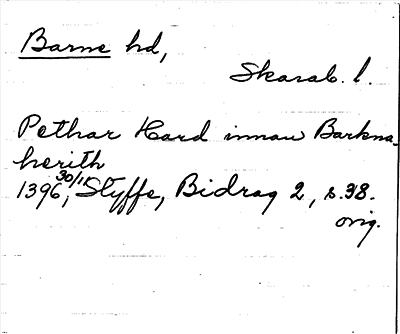 Barne hd,
Skarab. l.
Pethar Hard innan Barkna-
herith
1396 30/11, Styffe, Bidrag 2, s. 38.
orig.